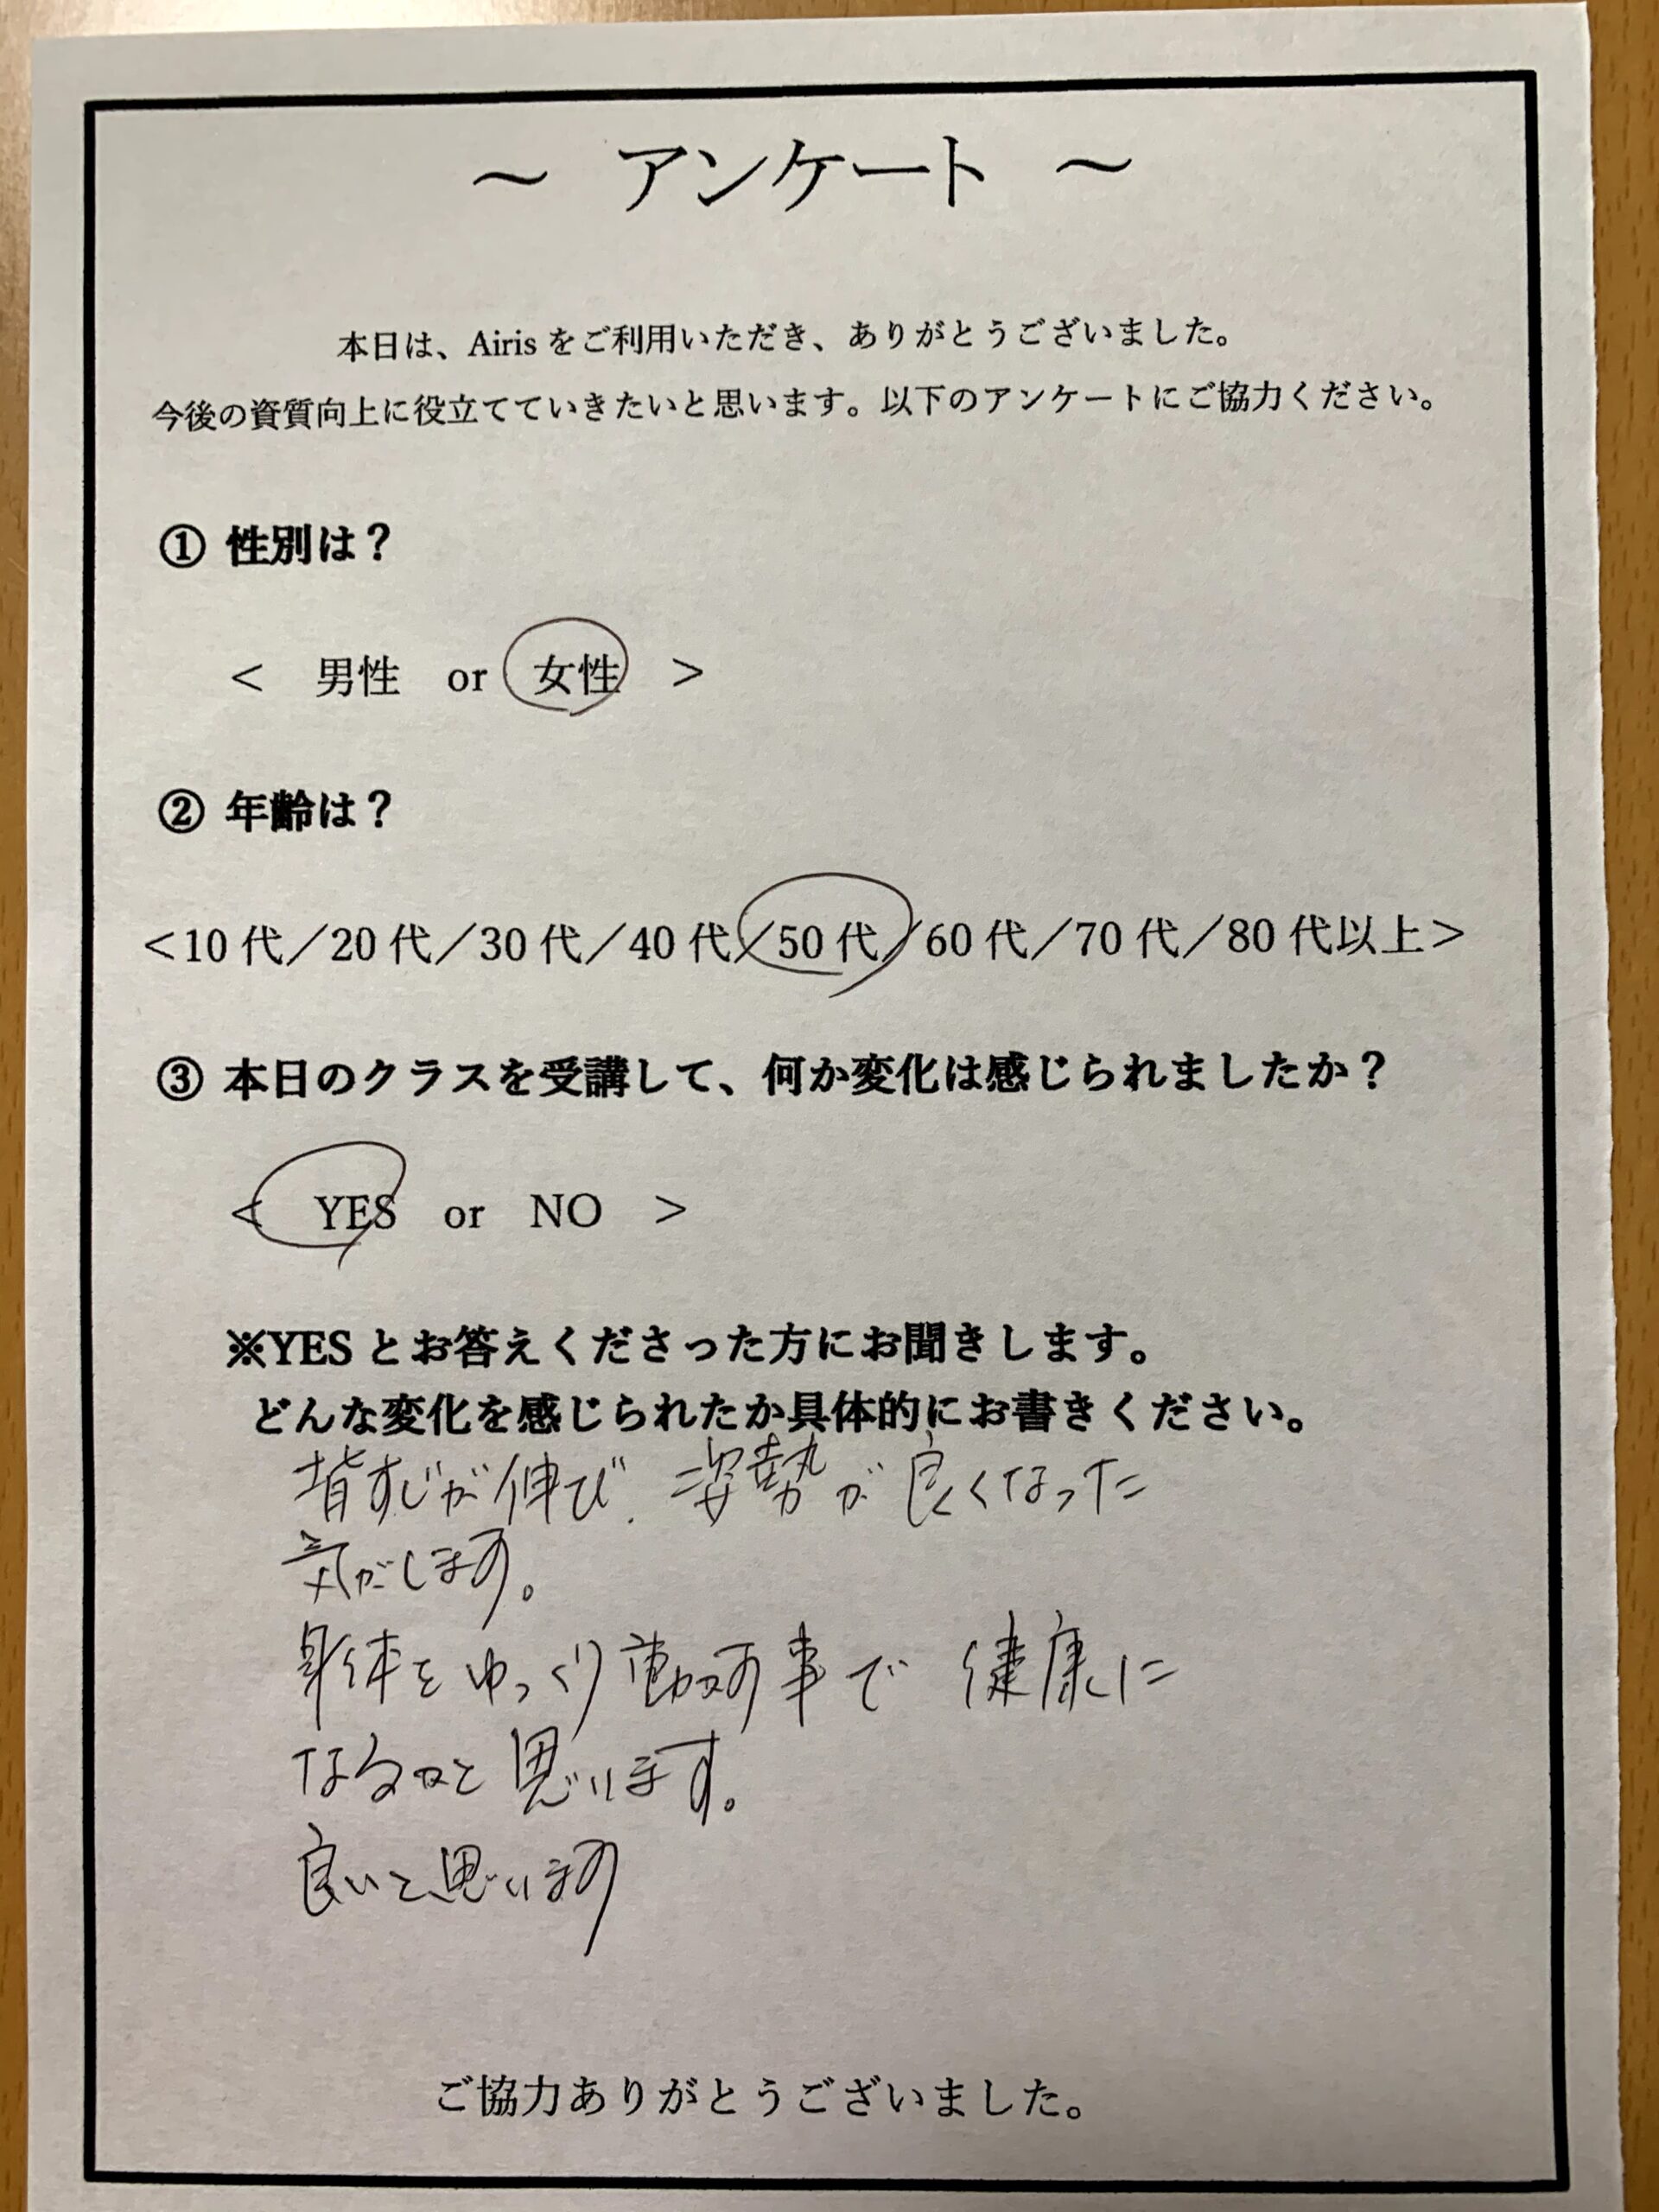 ～ アンケート ～
本日は、Airis をご利用いただき、ありがとうございました。
今後の資質向上に役立てていきたいと思います。以下のアンケートにご協力ください。
① 性別は？
＜ 男性 or 女性 ＞
② 年齢は？
＜10 代／20 代／30 代／40 代／50 代／60 代／70 代／80 代以上＞
③ 本日のクラスを受講して、何か変化は感じられましたか？
＜ YES or NO ＞
※YES とお答えくださった方にお聞きします。
どんな変化を感じられたか具体的にお書きください。
背すじが伸び、姿勢が良くなった
気がします。
身体をゆっくり動かす事で 健康に
なるかと思います。
良いと思います
ご協力ありがとうございました。